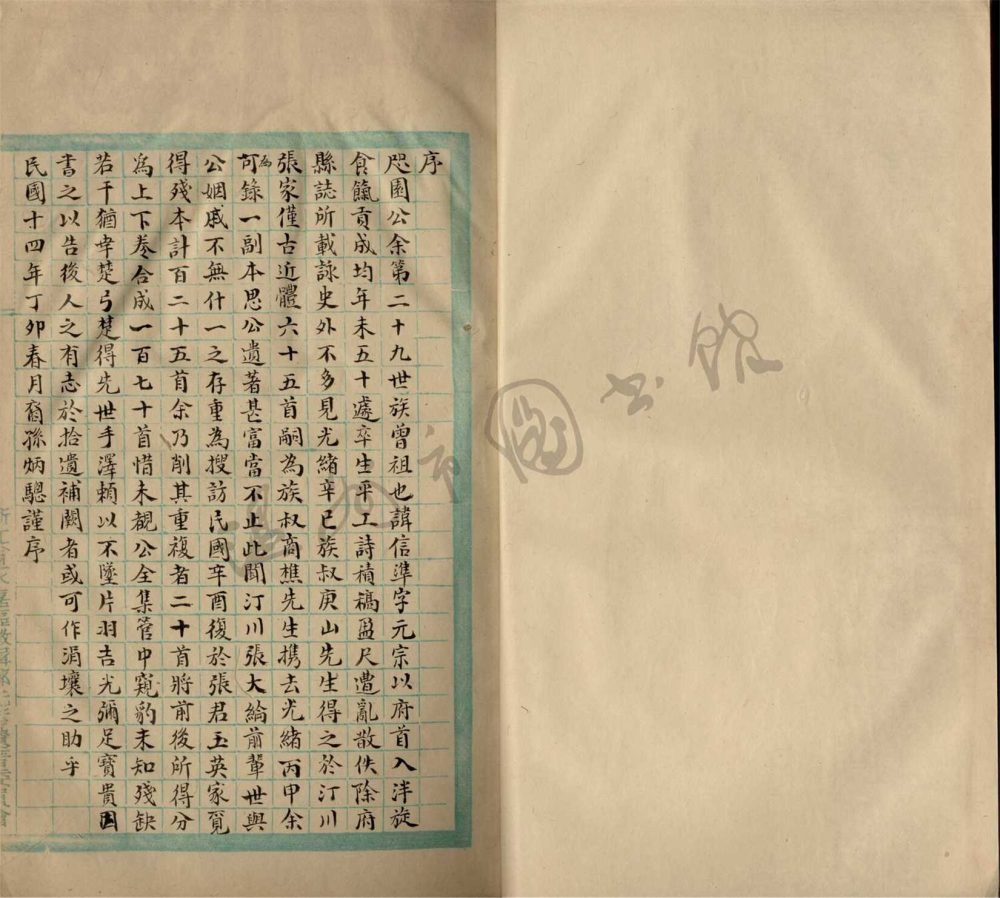 序
咫園公余第二十九世族曾祖也諱信準字元宗以府首入泮旋
食餼貢成均年未五十遽卒生平工詩積稿盈尺遭亂散佚除府
縣誌所載詠史外不多見光緒辛已族叔庚山先生得之於汀川
張家僅古近體六十五首嗣為族叔商樵先生携去光緒丙甲余
為
可錄一副本思公遺著甚富當不止此聞汀川張大綸前輩世與
公姻戚不無什一之存重為搜訪民國辛酉復於張君玉英家覓
得殘本計百二十五首余乃削其重複者二十首將前後所得分
為上下卷合成一百七十首惜未覩公全集管中窺豹未知殘缺
若干猶幸楚弓楚得先世手澤賴以不墜片羽吉光彌足寶貴因
書之以告後人之有志於拾遺補闕者或可作涓壤之助乎
民國十四年丁卯春月裔孫炳驄謹序
市圖书馆